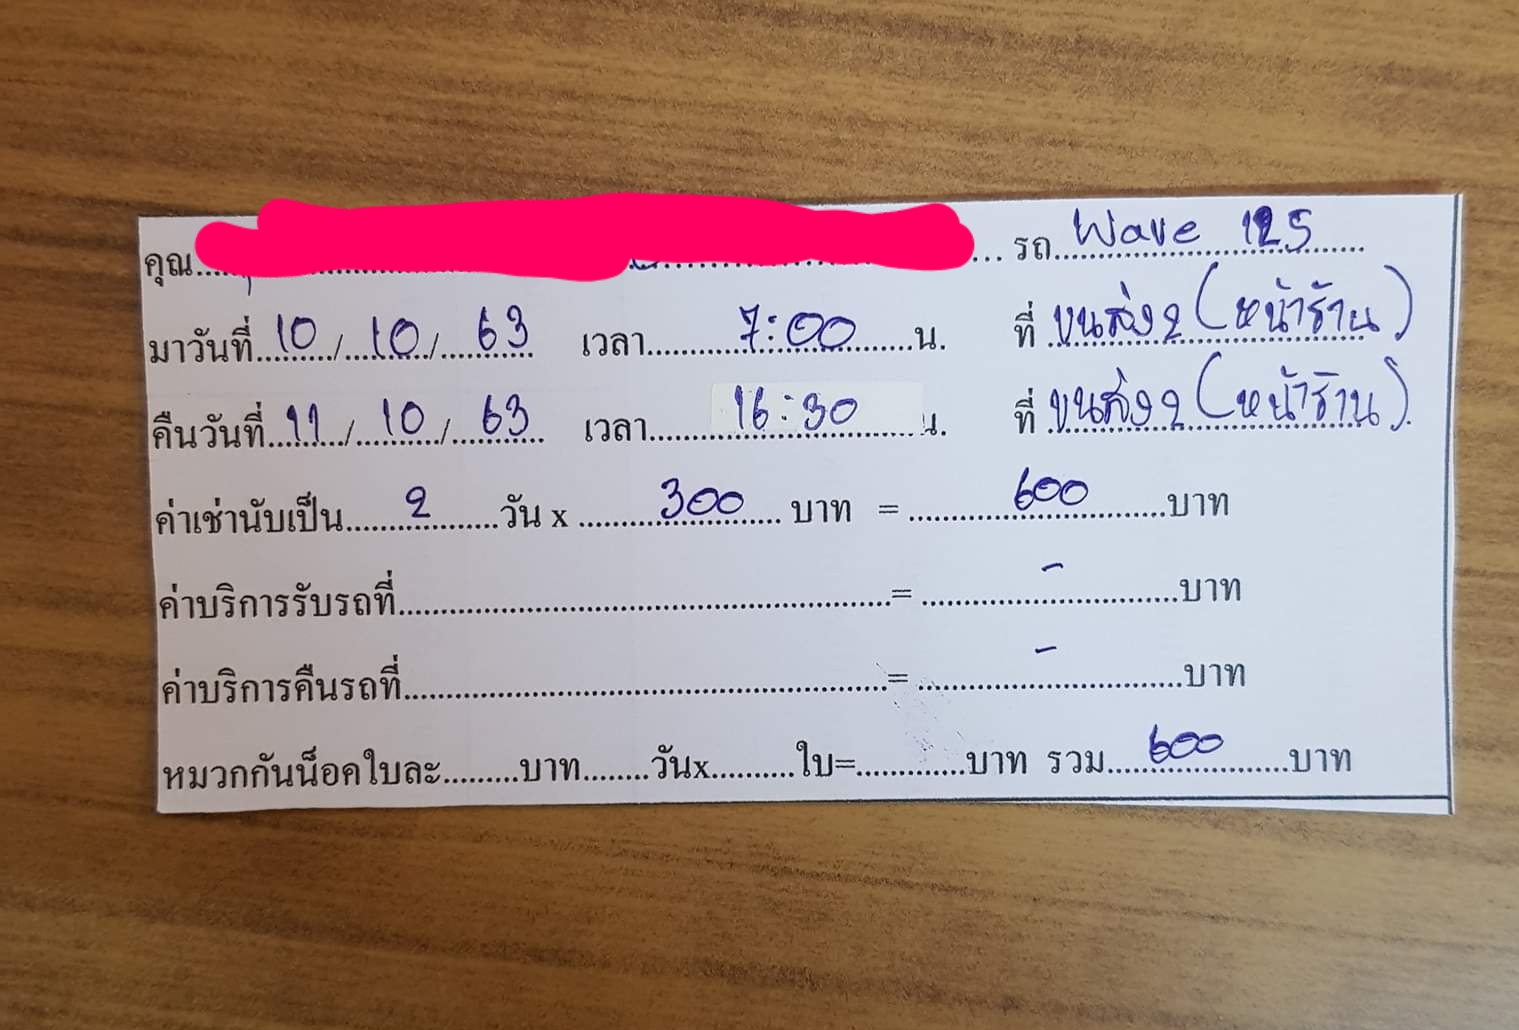 คุณ.................... รถ Wave 125
มาวันที่ 10 / 10 / 63 เวลา 7:00 น. ที่ ขนส่ง 2 (หน้าร้าน)
คืนวันที่ 11 / 10 / 63 เวลา 16:30 น. ที่ ขนส่ง 2 (หน้าร้าน)
ค่าเช่านับเป็น 2 วัน x 300 บาท = 600 บาท
ค่าบริการรับรถที่....................= - บาท
ค่าบริการคืนรถที่....................= - บาท
หมวกกันน็อคใบละ.........บาท........วันx..........ใบ=.............บาท รวม 600 บาท